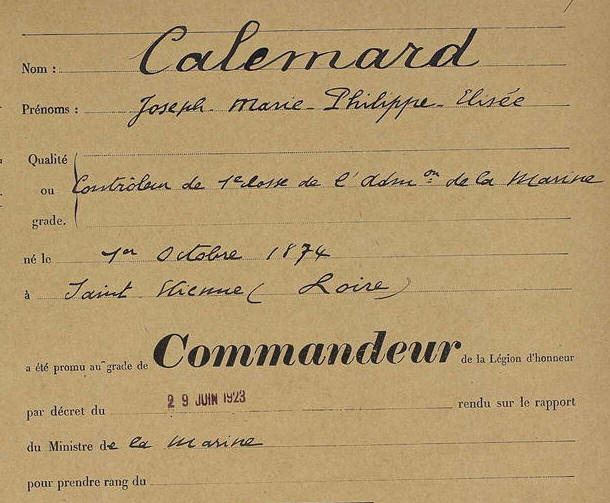 Nom : Calemard
Prénoms : Joseph-Marie-Philippe-Elisée
Qualité
ou Contrôleur de 1e classe de l'Admon de la Marine
grade.
né le 1er Octobre 1874
à Saint Etienne (Loire)
a été promu au grade de Commandeur de la Légion d'honneur
par décret du 29 JUIN 1923 rendu sur le rapport
du Ministre de la Marine
pour prendre rang du